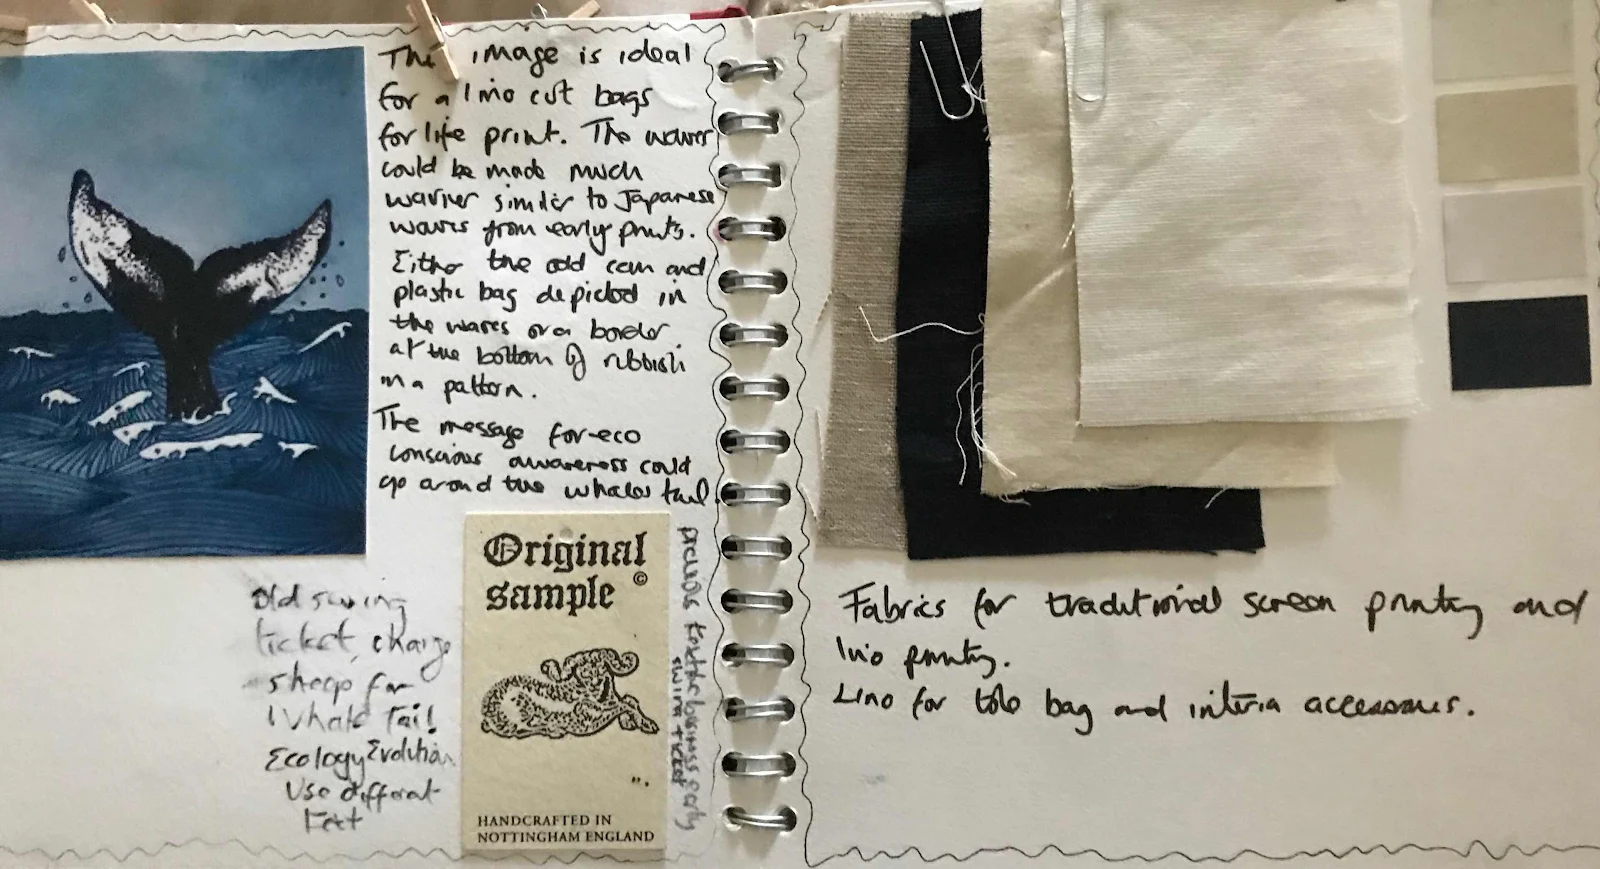 The image is ideal
for a lino cut bags
for life print. The waves
could be made much
wavier similar to Japanese
waves from early prints.
Either the odd can and
plastic bag depicted in
the waves or a border
at the bottom of rubbish
in a pattern.
The message for eco
conscious awareness could
go around the whales tail.
Original
sample ©
HANDCRAFTED IN
NOTTINGHAM ENGLAND
Old swing
ticket, change
sheep for
Whale Tail
Ecology Evolution
Use different
Text
previous business early
swing ticket
Fabrics for traditional screen printing and
lino printing.
Lino for tote bag and interia accessories.